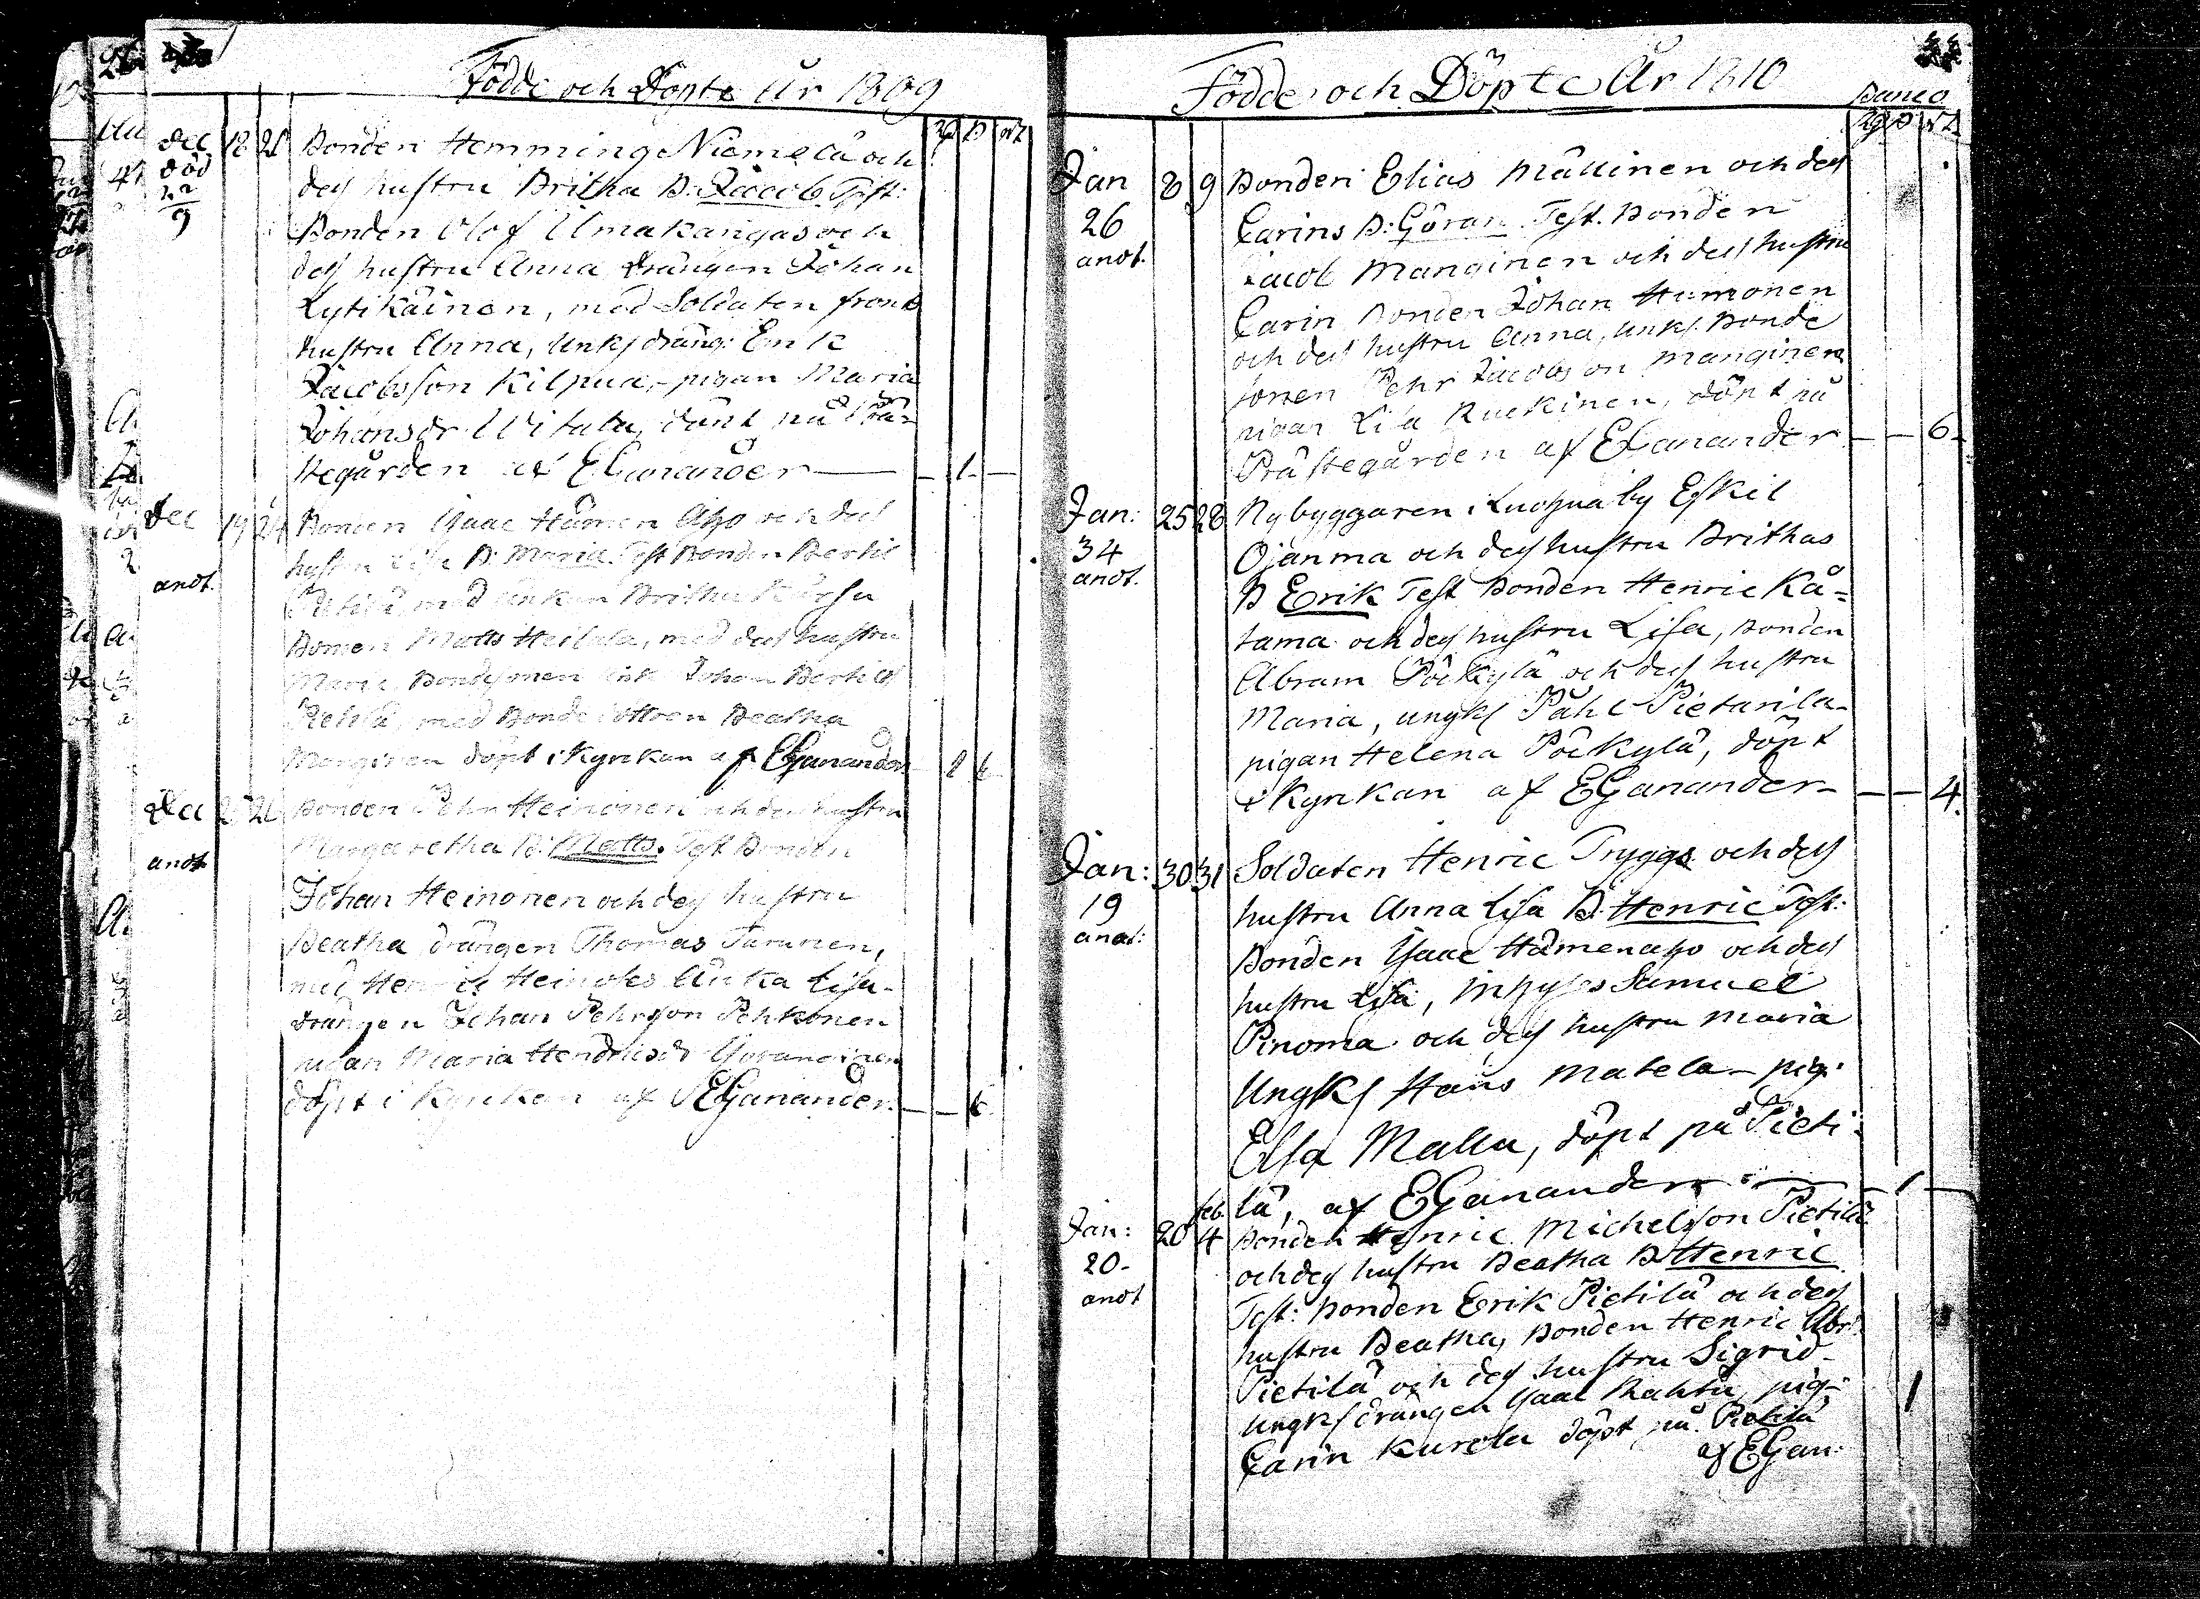 Födde och Döpte År 1809
Dec 18 21 Bonden Hemming Niemelä och
död 22/9 des hustru Britha B: Jacob. Test:
Bonden Olof Ulmakangas och
des hustru Anna drängen Johan
Lytikäinen, med Soldaten
hustru Anna, Unks dräng: Erik
Jacobsson Kilpua, pigan Maria
Johansdr Witala, döpt på Prä-
stegården af EGanander — 1 —
Dec 19 24 Bonden Isaac Hämen Aho och des
hustru Lisa B: Maria. Test Bonden Bertil
andt. Pietilä med enkan Britha
Bonden Matts Heilala, med des hustru
Maria, Johan Bertils
Pietilä, med Bonde dottren Beatha
Manginen döpt i Kyrkan af EGanander
Dec Bonden Pehr Heinonen och des hustru
Margaretha B: Matts. Test Bonden
andt
Johan Heinonen och des hustru
Beatha drängen Thomas Tarunen,
med Henric Heinoles Enka Lisa-
drängen Johan Pehrsson Pehkonen
pigan Maria Hendricsdr
döpt i Kyrkan af EGanander. — — 6.
Födde och Döpte År 1810
Banco
Jan 8 9 Bonden Elias Mällinen och des
26 Carins B: Göran. Test. Bonden
andt. Jacob Manginen och des hustru
Carin Bonden Johan
och des hustru Anna, Unks. Bonde
sonen Pehr Jacobsson Manginen
pigan Lisa Ruckinen, döpt på
Prästegården af EGanander — — 6.
Jan: 25 28 Nybyggaren i Luohua by Eskil
34 Ojanma och des hustru Brithas
andt. B Erik Test Bonden Henric Kå=
tama och des hustru Lisa, Bonden
Abram Pöckylä och des hustru
Maria, ungks Påhl Pietarila-
pigan Helena Pöckylä, döpt
i Kyrkan af EGanander — — 4.
Jan: 30 31 Soldaten Henric Tryggs och des
19 hustru Anna Lisa B. Henric Test:
andt: Bonden Isaac Hämenaho och des
hustru Lisa, Inhyses Samuel
Pinoma och des hustru Maria
Ungks Hans Matela - pig:
Elsa Malla, döpt på Pieti-
lä, af EGanander — 1 —
feb.
Jan: 20 4 Bonden Henric Michelsson Pietilä
20- och des hustru Beatha B Henric
andt Test: Bonden Erik Pietilä och des
hustru Beatha, Bonden Henric Abr:
Pietilä och des hustru Sigrid-
Ungks drängen Isaac Rahtu, pig-
Carin Kurela döpt på Pietilä 1
af EGan: